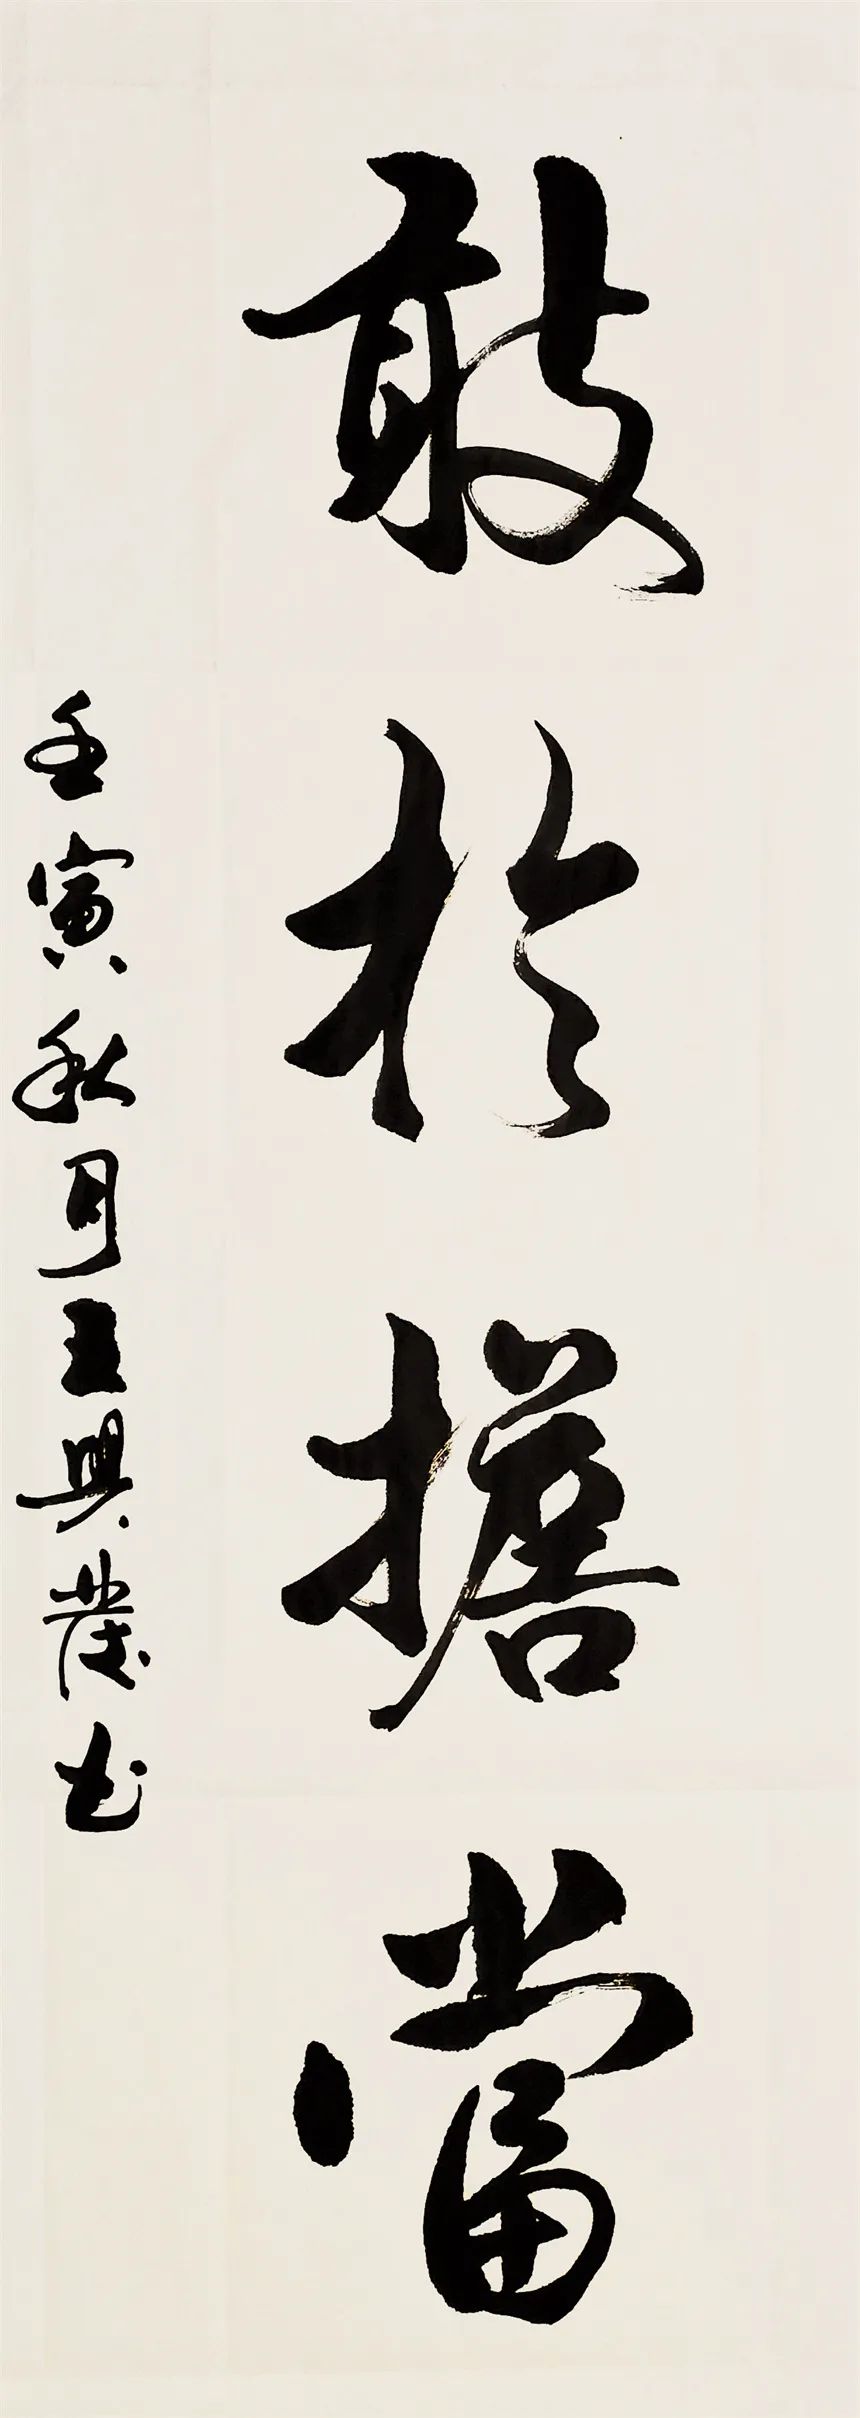 敢於擔當
壬寅秋月王興茂书